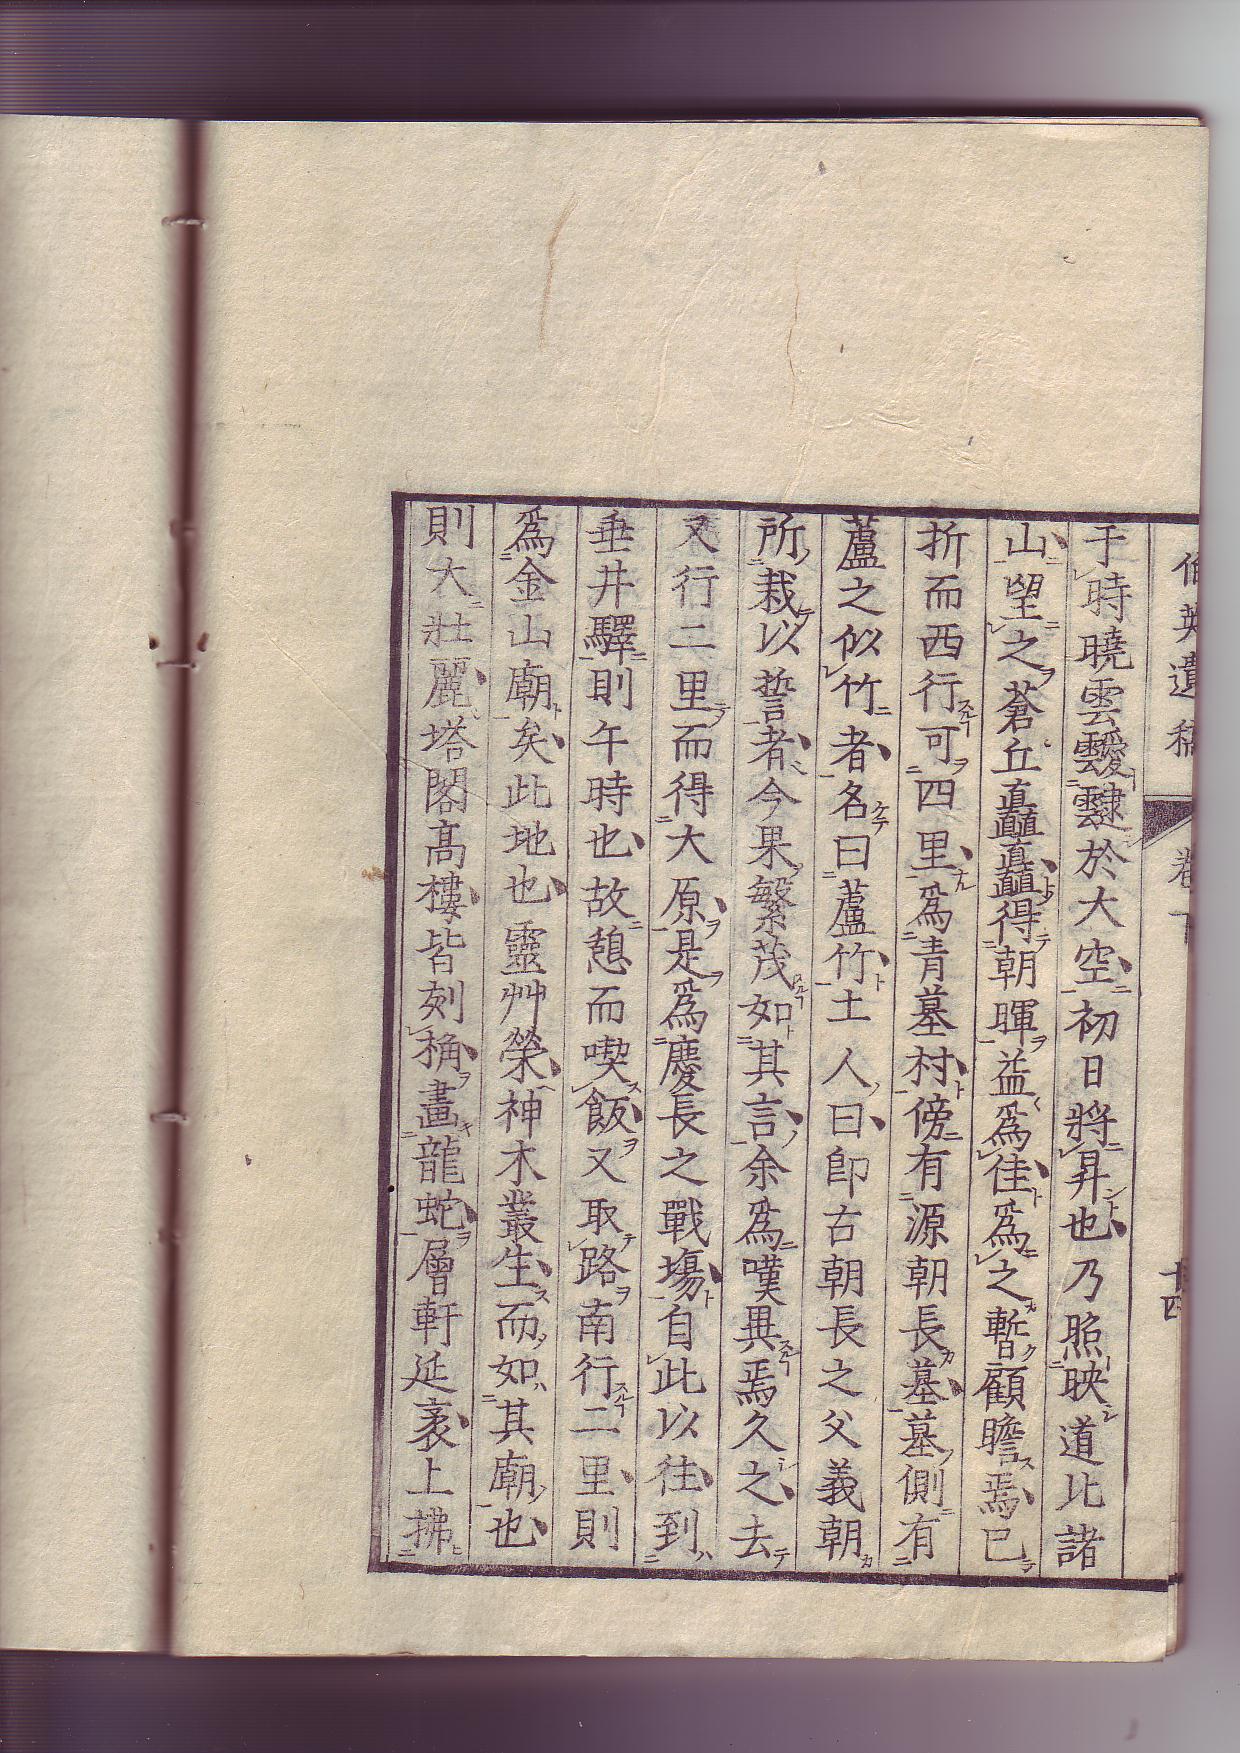 于時曉雲靉靆於大空初日將昇也乃照映道比諸
山望之蒼丘直矗直矗得朝暉益爲佳爲之暫顧瞻焉已
折而西行可四里爲青墓村傍有源朝長墓墓側有
蘆之似竹者名曰蘆竹土人曰即古朝長之父義朝
所栽以誓者今果繁茂如其言余爲嘆異焉久之去
又行二里而得大原是爲慶長之戰場自此以往到
垂井驛則午時也故憩而喫飯又取路南行二里則
爲金山廟矣此地也靈艸榮神木叢生而如其廟也
則大壯麗塔閣高樓皆刻桷畫龍蛇層軒延袤上拂
遺稿
廿四